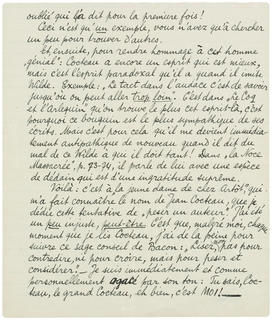 oublié qui l'a dit pour la première fois!
Ceci n'est qu'un exemple, vous n'avez qu'à chercher
un peu pour trouver d'autres.
Et ensuite, pour rendre hommage à cet homme
"génial": Cocteau a encore un esprit qui est mieux,
mais c'est l'esprit paradoxal qu'il a quand il imite
Wilde. Exemple: "Le tact dans l'audace c'est de savoir
jusqu'où on peut aller trop loin. C'est dans "Le Coq
et l'Arlequin" qu'on trouve le plus cet esprit-là, c'est
pourquoi ce bouquin est le plus sympathique de ses
écrits. Mais c'est pour cela qu'il me devient immédia-
tement antipathique de nouveau quand il dit du
mal de ce Wilde à qui il doit tant! Dans "La Noce
Massacrée", p. 73-74, il parle de lui avec une espèce
de dédain qui est d'une ingratitude suprême.
Voilà: c'est à la jeune dame de cher qui
m'a fait connaître le nom de Jean Cocteau, que je
dédie cette tentative de "peser un auteur". J'ai été
un peu injuste, peut-être. C'est que, malgré moi, chaque
moment que je lis Cocteau, j'ai de la peine pour
suivre ce sage conseil de Bacon: "Lisez, pas pour
contredire, ni pour croire, mais pour peser et
considérer." — Je suis immédiatement et comme
personnellement agacé par son ton: Tu sais, l'oc-
teau, le grand Cocteau, eh bien, c'est MOI! —